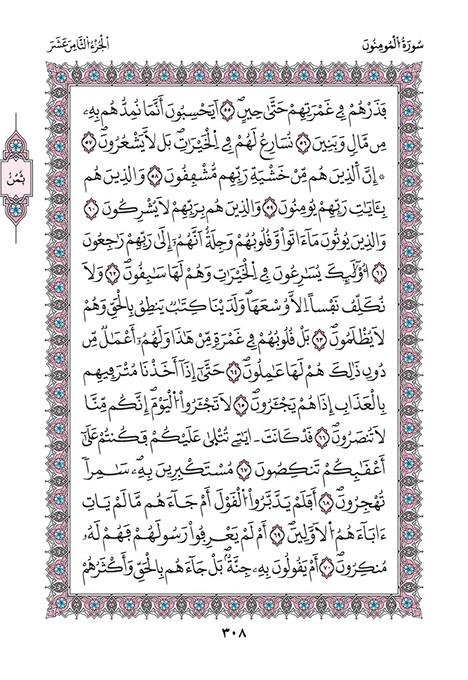 سُورَةُ الْمُومِنُونَ
الْجُزْءُ الثَّامِنَ عَشَرَ
فَذَرْهُمْ فِي غَمْرَتِهِمْ حَتَّىٰ حِينٍ ٥٥ اَيَحْسِبُونَ أَنَّمَا نُمِدُّهُم بِهِۦ
مِن مَّالٍ وَبَنِينَ ٥٦ نُسَارِعُ لَهُمْ فِي الْخَيْرَٰتِ بَل لَّا يَشْعُرُونَ ٥٧
۞ إِنَّ الَّذِينَ هُم مِّنْ خَشْيَةِ رَبِّهِم مُّشْفِقُونَ ٥٨ وَالَّذِينَ هُم
بِـَٔايَٰتِ رَبِّهِمْ يُومِنُونَ ٥٩ وَالَّذِينَ هُم بِرَبِّهِمْ لَا يُشْرِكُونَ ٦٠
وَالَّذِينَ يُوتُونَ مَا ءَاتَواْ وَّقُلُوبُهُمْ وَجِلَةٌ اَنَّهُمُۥٓ إِلَىٰ رَبِّهِمْ رَٰجِعُونَ
٦١ أُوْلَٰٓئِكَ يُسَٰرِعُونَ فِي الْخَيْرَٰتِ وَهُمْ لَهَا سَٰبِقُونَ ٦٢ وَلَا
نُكَلِّفُ نَفْساً اِلَّا وُسْعَهَا وَلَدَيْنَا كِتَٰبٌ يَنطِقُ بِالْحَقِّ وَهُمْ
لَا يُظْلَمُونَ ٦٣ بَلْ قُلُوبُهُمْ فِي غَمْرَةٍ مِّنْ هَٰذَا وَلَهُمُۥٓ أَعْمَٰلٌ مِّن
دُونِ ذَٰلِكَ هُمْ لَهَا عَٰمِلُونَ ٦٤ حَتَّىٰٓ إِذَآ أَخَذْنَا مُتْرَفِيهِم
بِالْعَذَابِ إِذَا هُمْ يَجْـَٔرُونَ ٦٥ لَا تَجْـَٔرُواْ الْيَوْمَ إِنَّكُم مِّنَّا
لَا تُنصَرُونَ ٦٦ قَدْ كَانَتَ ـ ايَٰتِي تُتْلَىٰ عَلَيْكُمْ فَكُنتُمْ عَلَىٰٓ
أَعْقَٰبِكُمْ تَنكِصُونَ ٦٧ مُسْتَكْبِرِينَ بِهِۦ سَٰمِراً
تُهْجِرُونَ ٦٨ أَفَلَمْ يَدَّبَّرُواْ الْقَوْلَ أَمْ جَآءَهُم مَّا لَمْ يَاتِ
ءَابَآءَهُمُ الْأَوَّلِينَ ٦٩ أَمْ لَمْ يَعْرِفُواْ رَسُولَهُمْ فَهُمْ لَهُۥ
مُنكِرُونَ ٧٠ أَمْ يَقُولُونَ بِهِۦ جِنَّةٌ بَلْ جَآءَهُم بِالْحَقِّ وَأَكْثَرُهُمْ
ثُمُنُ
٣٠٨